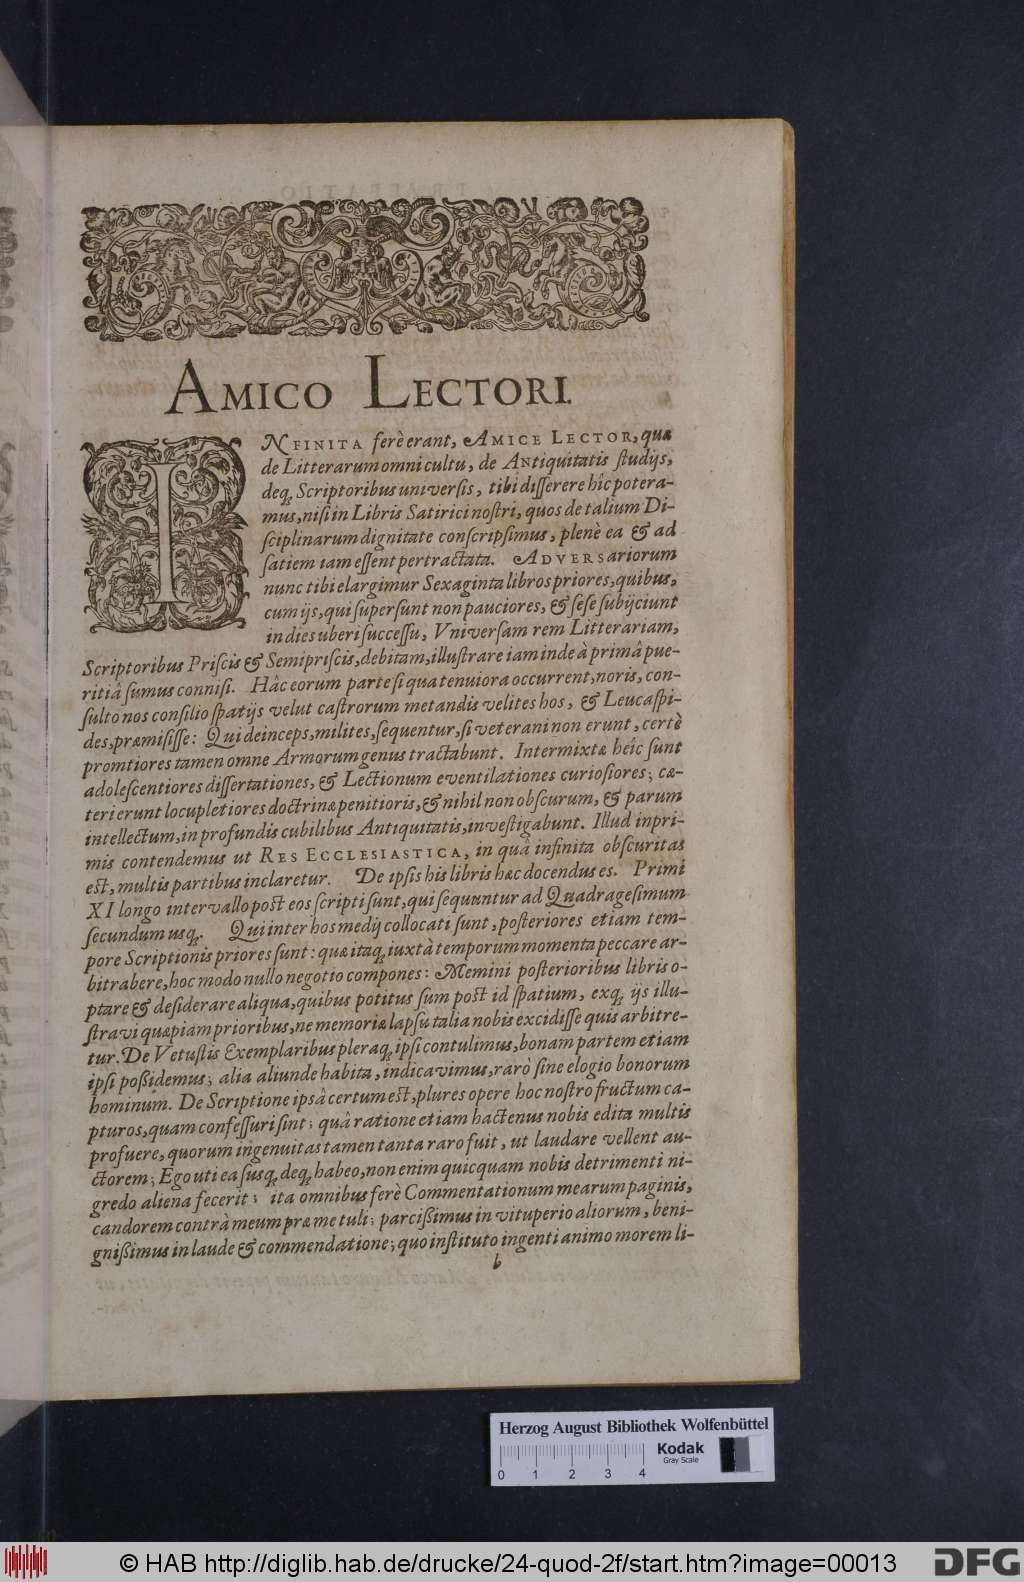 AMICO LECTORI.
INFINITA ferè erant, AMICE LECTOR, quæ
de Litterarum omni cultu, de Antiquitatis studijs,
deq; Scriptoribus universis, tibi disserere hîc potera-
mus, nisi in Libris Satirici nostri, quos de talium Di-
sciplinarum dignitate conscripsimus, plenè ea & ad
satiem iam essent pertractata. ADVERSariorum
nunc tibi elargimur Sexaginta libros priores, quibus,
cum ijs, qui supersunt non pauciores, & sese subijciunt
in dies uberi successu, Vniversam rem Litterariam,
Scriptoribus Priscis & Semipriscis, debitam, illustrare iam inde à primâ pue-
ritiâ sumus connisi. Hâc eorum parte si qua tenuiora occurrent, noris, con-
sulto nos consilio spatijs velut castrorum metandis velites hos, & Leucaspi-
des, præmisisse: Qui deinceps, milites, sequentur, si veterani non erunt, certè
promtiores tamen omne Armorum genus tractabunt. Intermixtæ heîc sunt
adolescentiores dissertationes, & Lectionum eventilationes curiosiores; cæ-
teri erunt locupletiores doctrinæ penitioris, & nihil non obscurum, & parum
intellectum, in profundis cubilibus Antiquitatis, investigabunt. Illud inpri-
mis contendemus ut RES ECCLESIASTICA, in quâ infinita obscuritas
est, multis partibus inclaretur. De ipsis his libris hæc docendus es. Primi
XI longo intervallo post eos scripti sunt, qui sequuntur ad Quadragesimum
secundum usq;. Qui inter hos medij collocati sunt, posteriores etiam tem-
pore Scriptionis priores sunt: quæ itaq; iuxtà temporum momenta peccare ar-
bitrabere, hoc modo nullo negotio compones: Memini posterioribus libris o-
ptare & desiderare aliqua, quibus potitus sum post id spatium, exq; ijs illu-
stravi quæpiam prioribus, ne memoriæ lapsu talia nobis excidisse quis arbitre-
tur. De Vetustis Exemplaribus pleraq; ipsi contulimus, bonam partem etiam
ipsi poßidemus; alia aliunde habita, indicavimus, rarò sine elogio bonorum
hominum. De Scriptione ipsâ certum est, plures opere hoc nostro fructum ca-
pturos, quam confessuri sint; quâ ratione etiam hactenus nobis edita multis
profuere, quorum ingenuitas tamen tanta raro fuit, ut laudare vellent au-
ctorem; Ego uti ea susq; deq; habeo, non enim quicquam nobis detrimenti ni-
gredo aliena fecerit; ita omnibus ferè Commentationum mearum paginis,
candorem contrà meum præ me tuli; parcißimus in vituperio aliorum, beni-
gnißimus in laude & commendatione; quo instituto ingenti animo morem li-
b
Herzog August Bibliothek Wolfenbüttel
Kodak
Gray Scale
0 1 2 3 4
© HAB http://diglib.hab.de/drucke/24-quod-2f/start.htm?image=00013
DFG